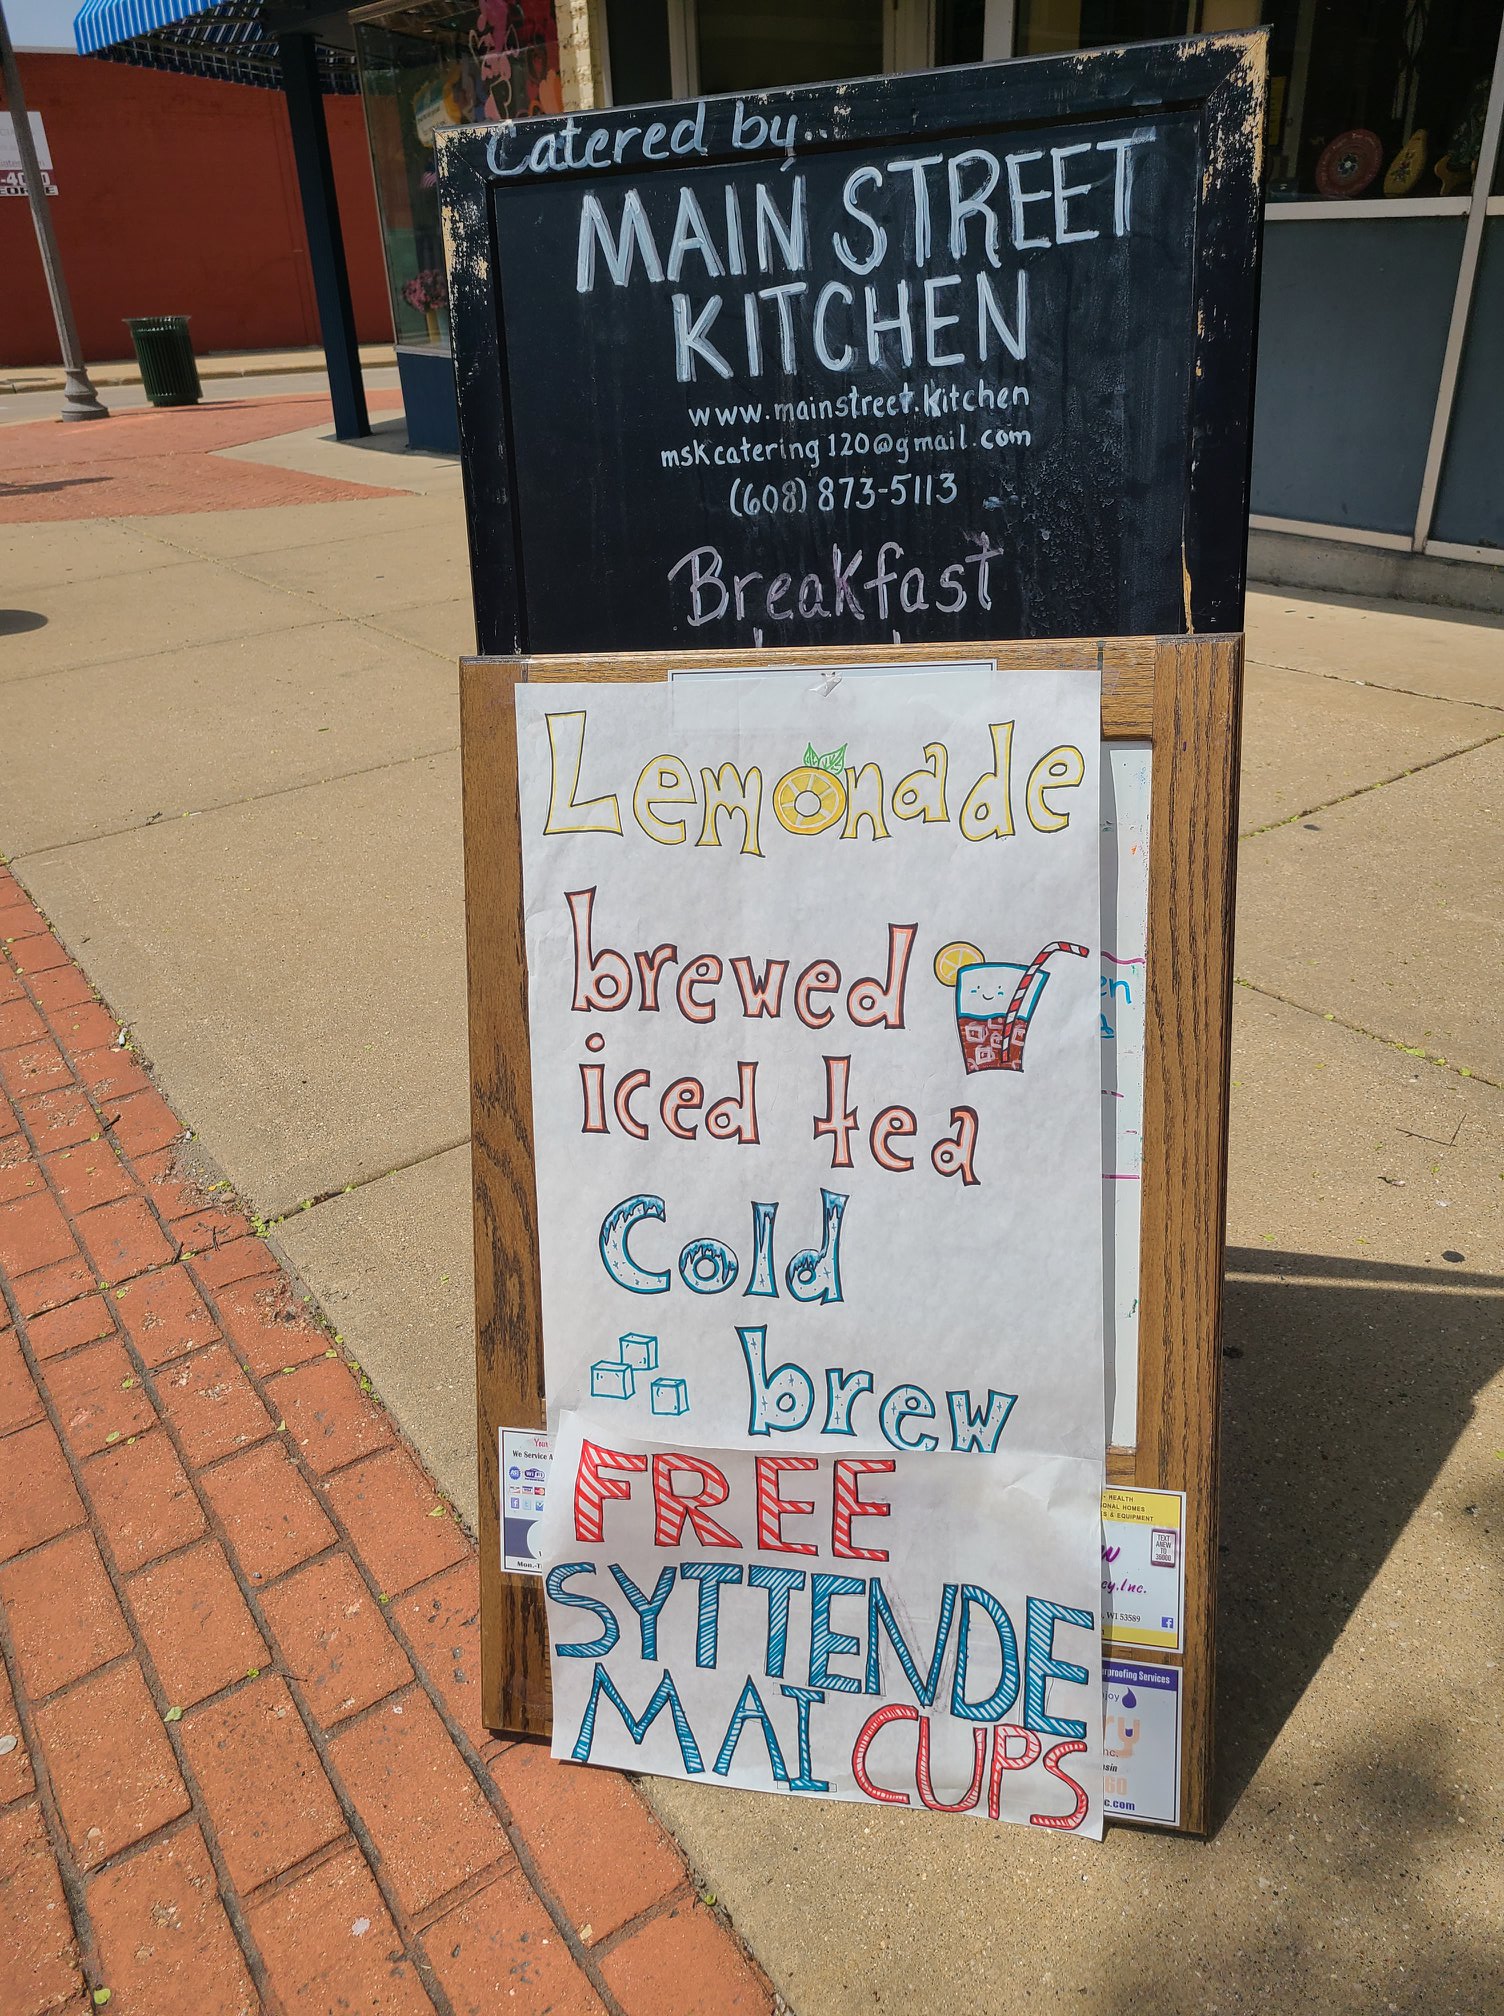 Catered by...
MAIN STREET
KITCHEN
www.mainstreet.kitchen
mskcatering120@gmail.com
(608) 873-5113
Breakfast
Lemonade
brewed
iced tea
Cold
brew
FREE
SYTTENDE
MAI CUPS
We Service A
Mon.-T
HEALTH
ONAL HOMES
& EQUIPMENT
TEXT
ANEW
TO
36000
cy.Inc.
, WI 53589
rproofing Services
njoy
ry
nc.
nsin
60
c.com
en
-40